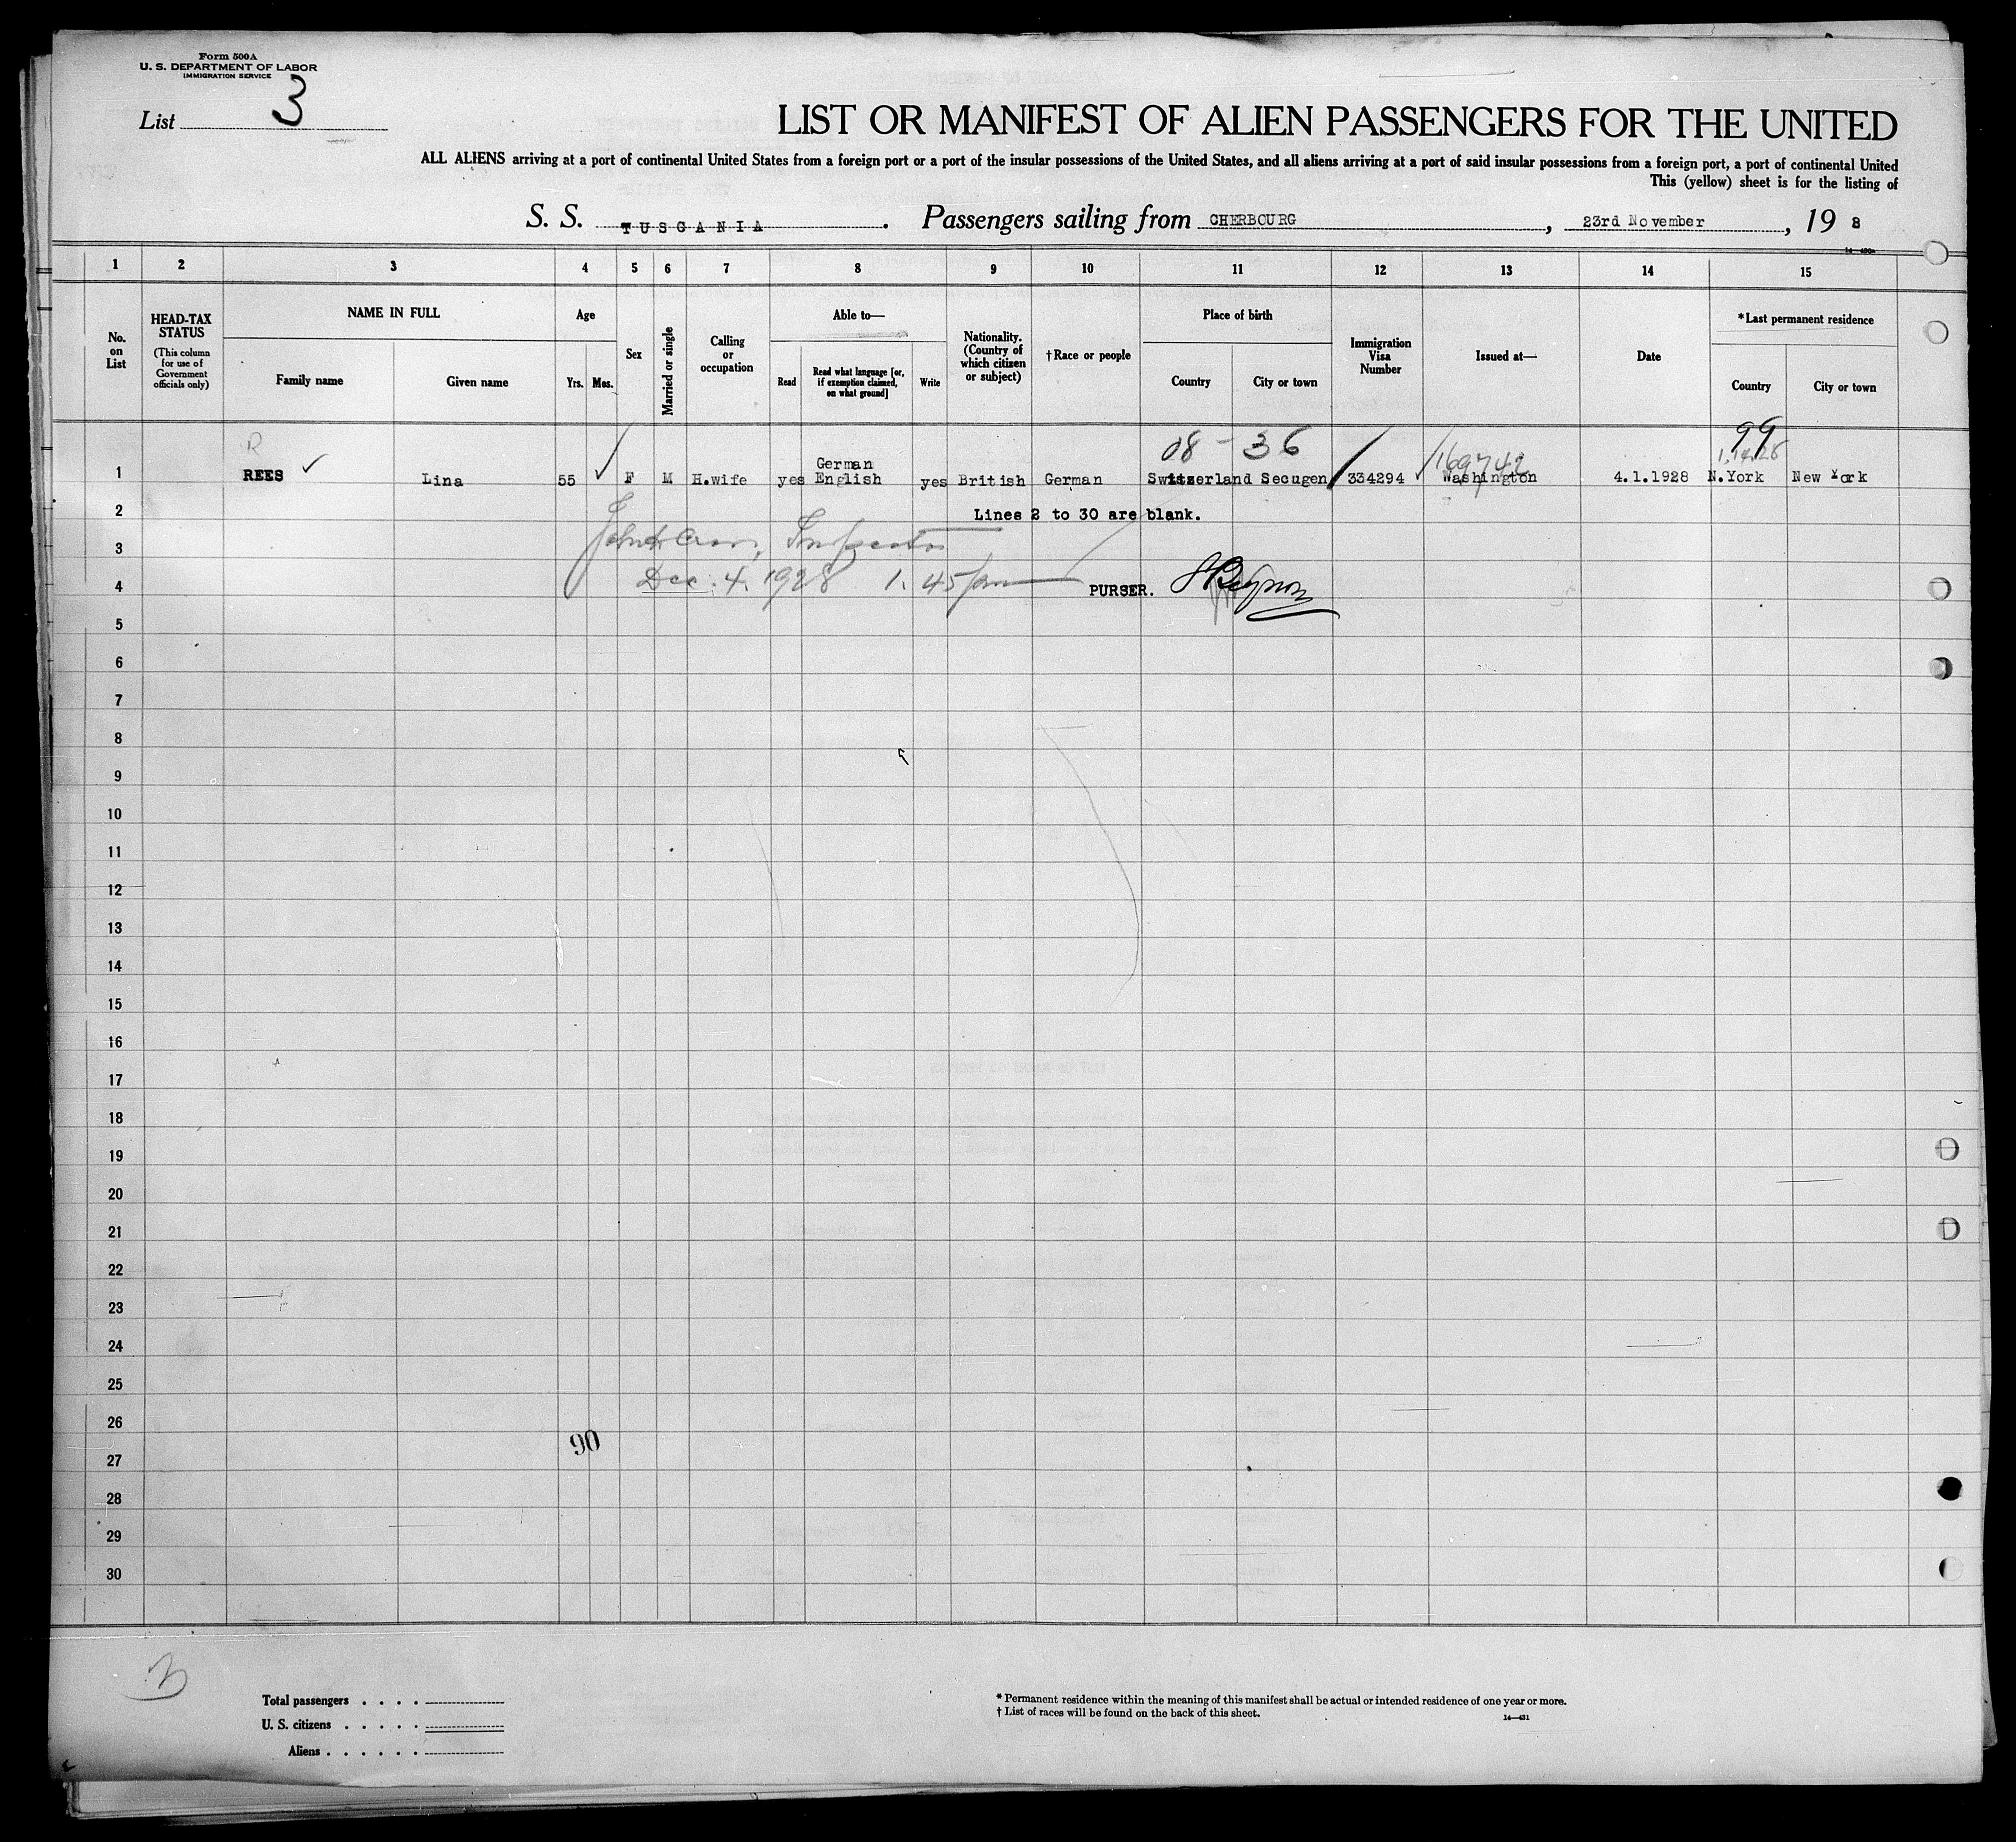 Form 500A
U. S. DEPARTMENT OF LABOR
IMMIGRATION SERVICE
List 3
LIST OR MANIFEST OF ALIEN PASSENGERS FOR THE UNITED
ALL ALIENS arriving at a port of continental United States from a foreign port or a port of the insular possessions of the United States, and all aliens arriving at a port of said insular possessions from a foreign port, a port of continental United
This (yellow) sheet is for the listing of
S. S. TUSCANIA. Passengers sailing from CHERBOURG, 23rd November, 19 8
1 2 3 4 5 6 7 8 9 10 11 12 13 14 15
No. on List
HEAD-TAX STATUS
(This column for use of Government officials only)
NAME IN FULL
Family name
Given name
Age
Yrs. Mos.
Sex
Married or single
Calling or occupation
Able to—
Read
Read what language [or, if exemption claimed, on what ground]
Write
Nationality. (Country of which citizen or subject)
†Race or people
Place of birth
Country
City or town
Immigration Visa Number
Issued at—
Date
*Last permanent residence
Country
City or town
R
08 - 36
99
169742
German
1 REES Lina 55 F M H.wife yes English yes British German Switzerland Secugen 334294 Washington 4.1.1928 N.York New York
2 Lines 2 to 30 are blank.
3 Inspector
4 Dec. 4. 1928 1.45 pm PURSER.
5
6
7
8
9
10
11
12
13
14
15
16
17
18
19
20
21
22
23
24
25
26
90
27
28
29
30
Total passengers . . . .
U. S. citizens . . . . .
Aliens . . . . . .
* Permanent residence within the meaning of this manifest shall be actual or intended residence of one year or more.
† List of races will be found on the back of this sheet.
14—431